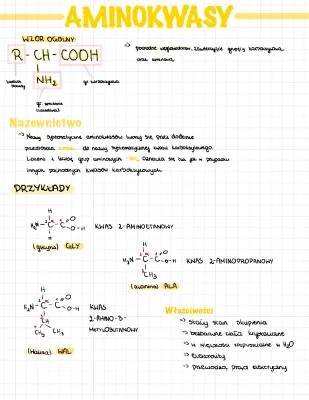 AMINOKWASY
WZÓR OGÓLNY
R - CH - COOH
NH₂
→ pochodne węglowodorów, zawierające grupę karboksylową
oraz aminową
gr. karboksylowa
gr. aminowa
(zasadowa)
Nazewnictwo
→ Nazwy systematyczne aminokwasów tworzy się przez dodanie
przedrostka amino- do nazwy systematycznej kwasu karboksylowego.
Lokant i liczbę grup aminowych -NH₂ oznacza się tak jak w przypadku
innych pochodnych kwasów karboksylowych.
PRZYKŁADY
H
H₂N - C - C O
O-H
H
KWAS 2-AMINOETANOWY
(glicyna) GLY
H
H₂N - C - C O
O-H
CH₃
KWAS 2-AMINOPROPANOWY
(alanina) ALA
H
H₂N - C - C O
O-H
CH
CH₃ CH₃
KWAS
2-AMINO-3-
METYLOBUTANOWY
(Walina) WAL
Właściwości
→ stały stan skupienia
→ bezbarwne ciała krystaliczne
→ w większości rozpuszczalne w H₂O
→ Elektrolity
→ przewodzą prąd elektryczny